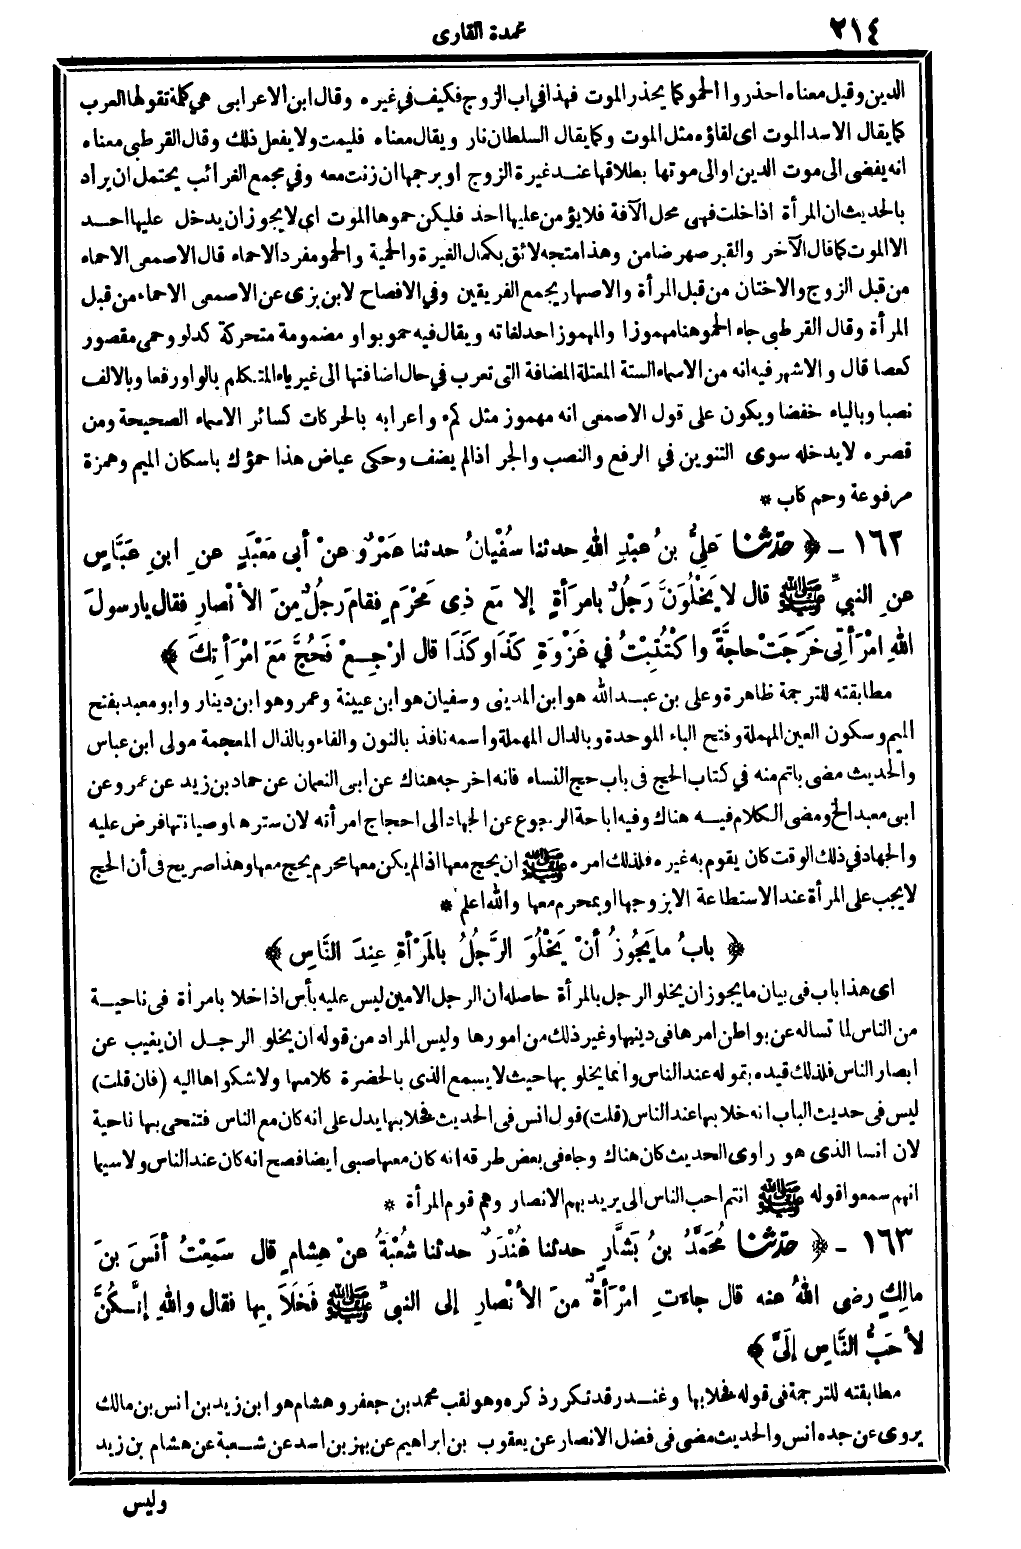 ٢١٤
عمدة القارى
الدين وقيل معناه احذروا الحمو كما يحذر الموت فهذا في اب الزوج فكيف في غيره وقال ابن الاعرابى هي كلمة تقولها العرب
كما يقال الاسد الموت اى لقاؤه مثل الموت وكما يقال السلطان نار ويقال معناه فليمت ولا يفعل ذلك وقال القرطبى معناه
انه يفضى الى موت الدين او الى موتها بطلاقها عند غيرة الزوج او برجمها ان زنت معه وفي مجمع الغرائب يحتمل ان يراد
بالحديث ان المرأة اذا خلت فهى محل الآفة فلا يؤمن عليها احد فليكن حموها الموت اى لا يجوز ان يدخل عليها احد
الا الموت كما قال الآخر والقبر صهر ضامن وهذا متجه لائق بكمال الغيرة والحمية والحمو مفرد الاحماء قال الاصمعى الاحماء
من قبل الزوج والاختان من قبل المرأة والاصهار يجمع الفريقين وفي الافصاح لابن بزى عن الاصمعى الاحماء من قبل
المرأة وقال القرطبى جاء الحمو هنا مهموزا والمهموز احد لغاته ويقال فيه حمو بواو مضمومة متحركة كدلو وحمى مقصور
كعصا قال والاشهر فيه انه من الاسماء الستة المعتلة المضافة التى تعرب في حال اضافتها الى غير ياء المتكلم بالواو رفعا وبالالف
نصبا وبالياء خفضا ويكون على قول الاصمعى انه مهموز مثل كمء واعرابه بالحركات كسائر الاسماء الصحيحة ومن
قصره لا يدخله سوى التنوين في الرفع والنصب والجر اذا لم يضف وحكى عياض هذا حمؤك باسكان الميم وهمزة
مرفوعة وحم كاب *
١٦٢ - ﴿ حدثنا عَلِىُّ بنُ عبْدِ اللهِ حدثنا سُفْيانُ حدثنا عَمْرٌو عنْ أبى مَعْبَدٍ عنِ ابنِ عَبَّاسٍ
عنِ النبيِّ ﷺ قال لا يَخْلُوَنَّ رَجُلٌ بامرَأةٍ إلا مَع ذِى مَحْرَمٍ فقامَ رَجلٌ مِنَ الأنْصارِ فقال يارسولَ
اللهِ امْرَأتِى خَرَجَتْ حاجَّةً واكْتُتِبْتُ في غَزْوَةِ كَذَا وكَذَا قال ارْجِعْ فَحُجَّ مَعَ امْرَأتِكَ ﴾
مطابقته للترجمة ظاهرة وعلى بن عبد الله هو ابن المدينى وسفيان هو ابن عيينة وعمرو هو ابن دينار وابو معبد بفتح
الميم وسكون العين المهملة وفتح الباء الموحدة وبالدال المهملة واسمه نافذ بالنون والفاء وبالذال المعجمة مولى ابن عباس
والحديث مضى باتم منه في كتاب الحج فى باب حج النساء فانه اخرجه هناك عن ابى النعمان عن حماد بن زيد عن عمرو عن
ابى معبد الخ ومضى الكلام فيه هناك وفيه اباحة الرجوع عن الجهاد الى احجاج امرأته لان سترها وصيانتها فرض عليه
والجهاد في ذلك الوقت كان يقوم به غيره فلذلك امره ﷺ ان يحج معها اذا لم يكن معها محرم يحج معها وهذا صريح فى أن الحج
لا يجب على المرأة عند الاستطاعة الا بزوجها او بمحرم معها والله اعلم *
﴿ بابُ ما يَجُوزُ أنْ يَخْلُوَ الرَّجُلُ بالمَرْأةِ عِندَ النَّاسِ ﴾
اى هذا باب فى بيان ما يجوز ان يخلو الرجل بالمرأة حاصله ان الرجل الامين ليس عليه بأس اذا خلا بامرأة فى ناحية
من الناس لما تساله عن بواطن امرها فى دينها وغير ذلك من امورها وليس المراد من قوله ان يخلو الرجل ان يغيب عن
ابصار الناس فلذلك قيده بقوله عند الناس وانما يخلو بها حيث لا يسمع الذى بالحضرة كلامها ولا شكواها اليه (فان قلت)
ليس فى حديث الباب انه خلا بها عند الناس (قلت) قول انس فى الحديث فخلا بها يدل على انه كان مع الناس فتنحى بها ناحية
لان انسا الذى هو راوى الحديث كان هناك وجاء فى بعض طرقه انه كان معها صبى ايضا فصح انه كان عند الناس ولا سيما
انهم سمعوا قوله ﷺ انتم احب الناس الى يريد بهم الانصار وهم قوم المرأة *
١٦٣ - ﴿ حدثنا مُحَمَّدُ بنُ بَشَّارٍ حدثنا غُنْدَرٌ حدثنا شُعْبَةُ عنْ هِشامٍ قال سَمِعْتُ أنَسَ بنَ
مالِكٍ رضى اللهُ عنه قال جاءَتِ امْرَأةٌ منَ الأنْصارِ إلى النبيِّ ﷺ فَخَلاَ بِها فقال واللهِ إنَّكُنَّ
لأحَبُّ النَّاسِ إلَىَّ ﴾
مطابقته للترجمة فى قوله فخلا بها وغندر قد تكرر ذكره وهو لقب محمد بن جعفر وهشام هو ابن زيد بن انس بن مالك
يروى عن جده انس والحديث مضى فى فضل الانصار عن يعقوب بن ابراهيم عن بهز بن اسد عن شعبة عن هشام بن زيد
وليس